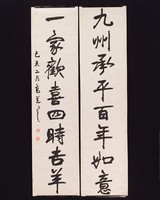 九州承平百年如意
一家歡喜四時吉羊